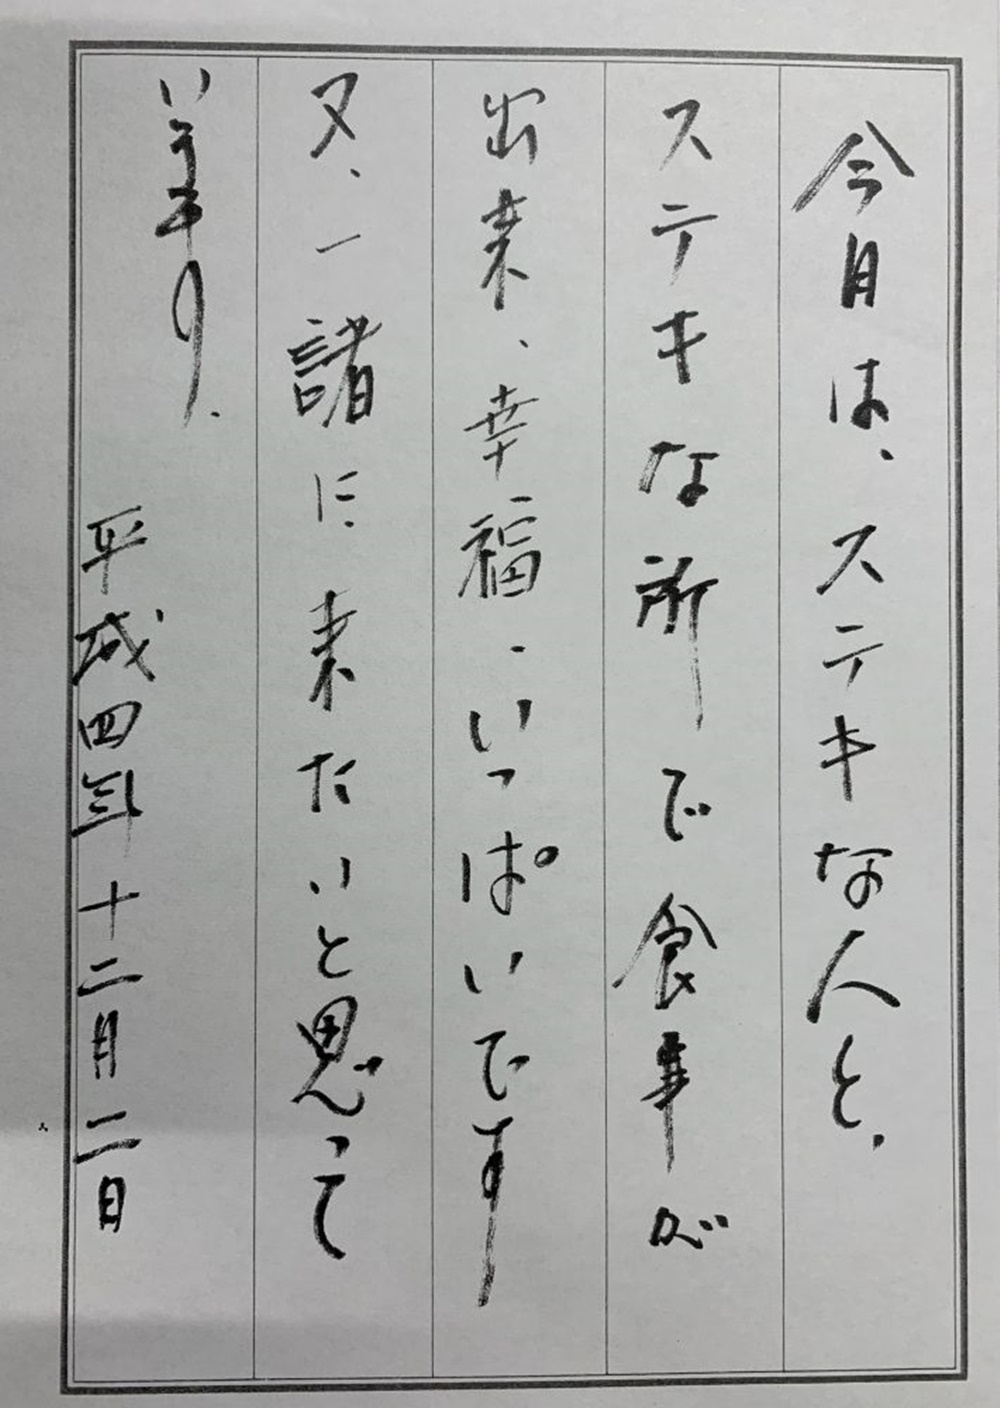 今日は、ステキな人と、
ステキな所で食事が
出来、幸福、いっぱいです
又、一諸に来たいと思って
います.
平成四年十二月二日